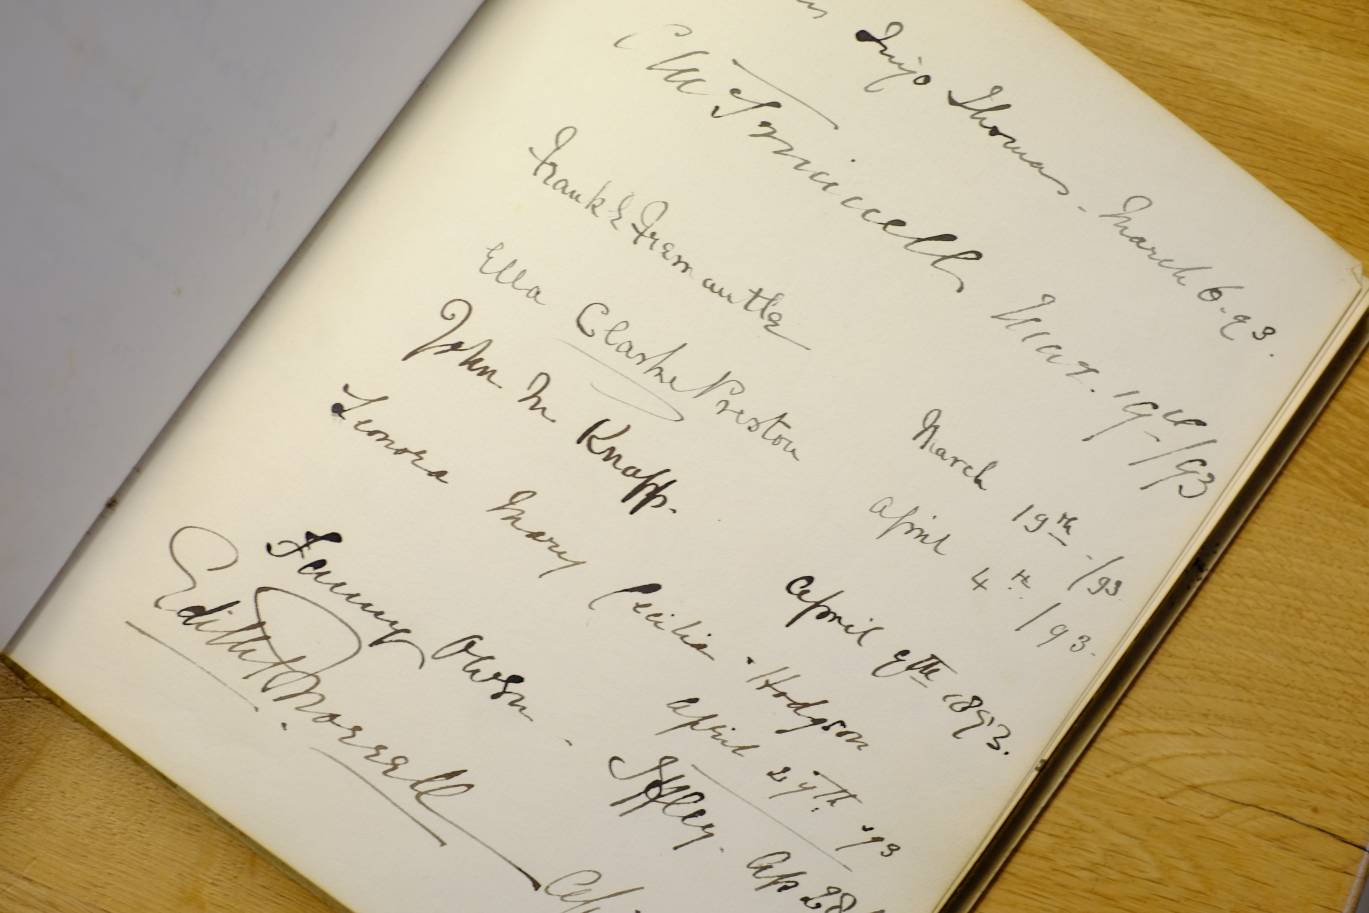 Inigo Thomas - March 6. 93.
Mar. 19th/93
Frank E Fremantle March 19th/93
Ella Clarke Preston April 4th/93.
John M Knapp. April 9th 1893.
Leonora Mary Cecilia Hodgson April 27th 93
Fanny Owen - Iffley. Ap 28
Edith Morrell